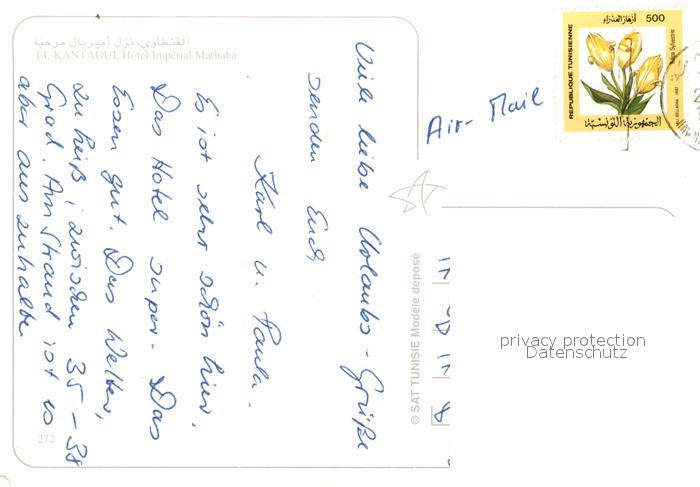 القنطاوي، نزل أمبريال مرحبا
EL KANTAOUI, Hôtel Impérial Marhaba
Viele liebe Urlaubs-Grüße
senden Euch
Karl u. Paula.
Es ist sehr schön hier.
Das Hotel super. Das
Essen gut. Das Wetter,
zu heiß, zwischen 35 – 38
Grad. Am Strand ist es
aber auszuhalten
272
Air-Mail
© SAT TUNISIE Modèle déposé
500
REPUBLIQUE TUNISIENNE
الجمهورية التونسية
privacy protection
Datenschutz